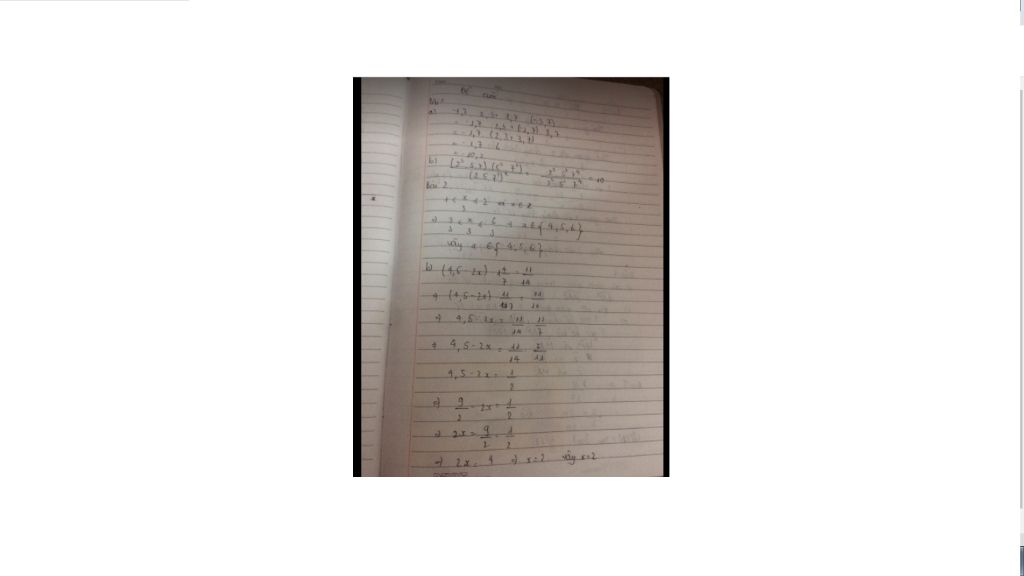 Bài 1
a) -1,7 . 2,3 + 1,7 . (-3,7)
= -1,7 . 2,3 + (-1,7) . 3,7
= -1,7 . (2,3 + 3,7)
= -1,7 . 6
= -10,2
b)
= 10
Bài 2
1 < x/3 < 2 x ∈ Z
⇒ 3/3 < x/3 < 6/3 x ∈ { 4, 5, 6 }
vậy x ∈ { 4; 5, 6 }
b) (4,5 - 2x) . 1 4/7 = 11/14
⇒ (4,5 - 2x) . 11/7 = 11/14
⇒ 4,5 - 2x = 11/14 : 11/7
⇒ 4,5 - 2x = 11/14 . 7/11
4,5 - 2x = 1/2
⇒ 9/2 - 2x = 1/2
⇒ 2x = 9/2 - 1/2
⇒ 2x = 4 ⇒ x = 2 vậy x = 2